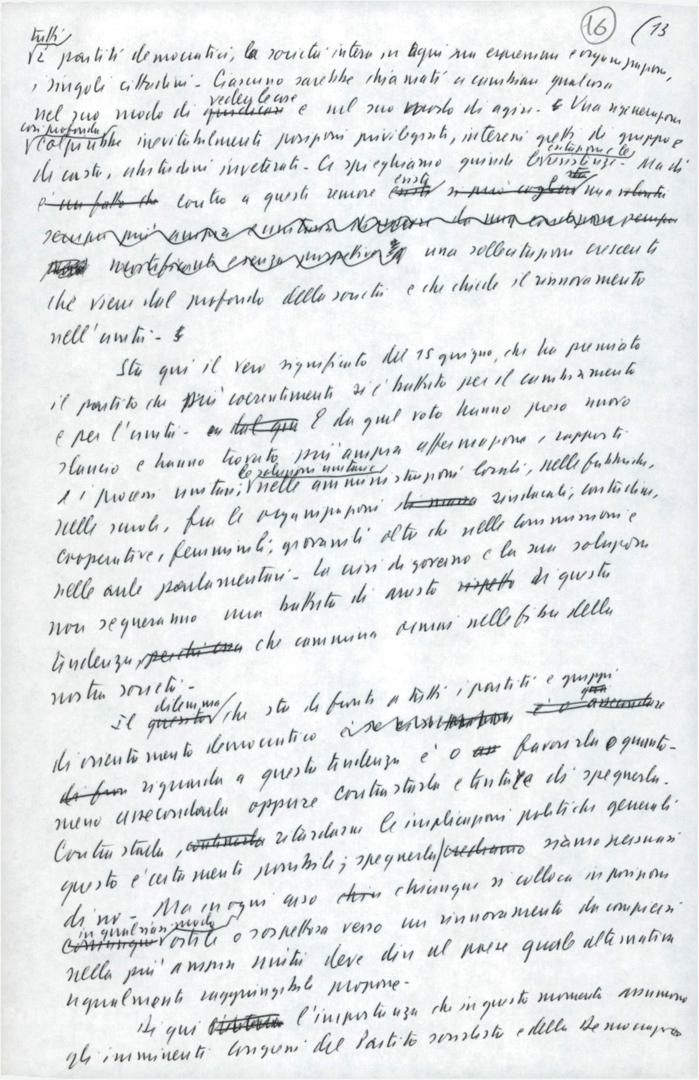 16 (13
tutti
i partiti democratici, la società intera in ogni sua espressione e organizzazione,
i singoli cittadini. Ciascuno sarebbe chiamato a cambiare qualcosa
vedere le cose
nel suo modo di giudicare e nel suo modo di agire. Una rigenerazione
così profonda
colpirebbe inevitabilmente posizioni privilegiate, interessi gretti di gruppo e
di casta, abitudini inveterate. Ci spieghiamo quindi le resistenze. Ma di
è un fatto che contro a queste remore esiste si può cogliere una
una sollecitazione crescente
che viene dal profondo della società e che chiede il rinnovamento
nell'unità.
Sta qui il vero significato del 15 giugno, che ha premiato
il partito che più coerentemente si è battuto per il cambiamento
e per l'unità. E da quel voto hanno preso nuovo
slancio e hanno trovato più ampia affermazione i rapporti
le soluzioni unitarie
e i processi unitari, nelle amministrazioni locali, nelle fabbriche,
nelle scuole, fra le organizzazioni di massa sindacali, contadine,
cooperative, femminili, giovanili oltre che nelle commissioni e
nelle aule parlamentari. La crisi di governo e la sua soluzione
non segneranno una battuta di arresto rispetto di questa
tendenza, perché essa che cammina ormai nelle fibre della
nostra società.
dilemma
Il che sta di fronte a tutti i partiti e gruppi
di orientamento democratico è o assecondare
riguardo a questa tendenza è o favorirla o quanto
meno assecondarla oppure contrastarla e tentare di spegnerla.
Contrastarla, ritardarne le implicazioni politiche generali
questo è certamente possibile; spegnerla, crediamo siamo persuasi
di no. Ma in ogni caso chi chiunque si colloca in posizione
in qualsiasi modo
Comunque ostile o sospettosa verso un rinnovamento da compiersi
nella più ampia unità deve dire al paese quale alternativa
ugualmente raggiungibile propone.
Di qui l'importanza che in questo momento assumono
gli imminenti congressi del Partito socialista e della Democrazia